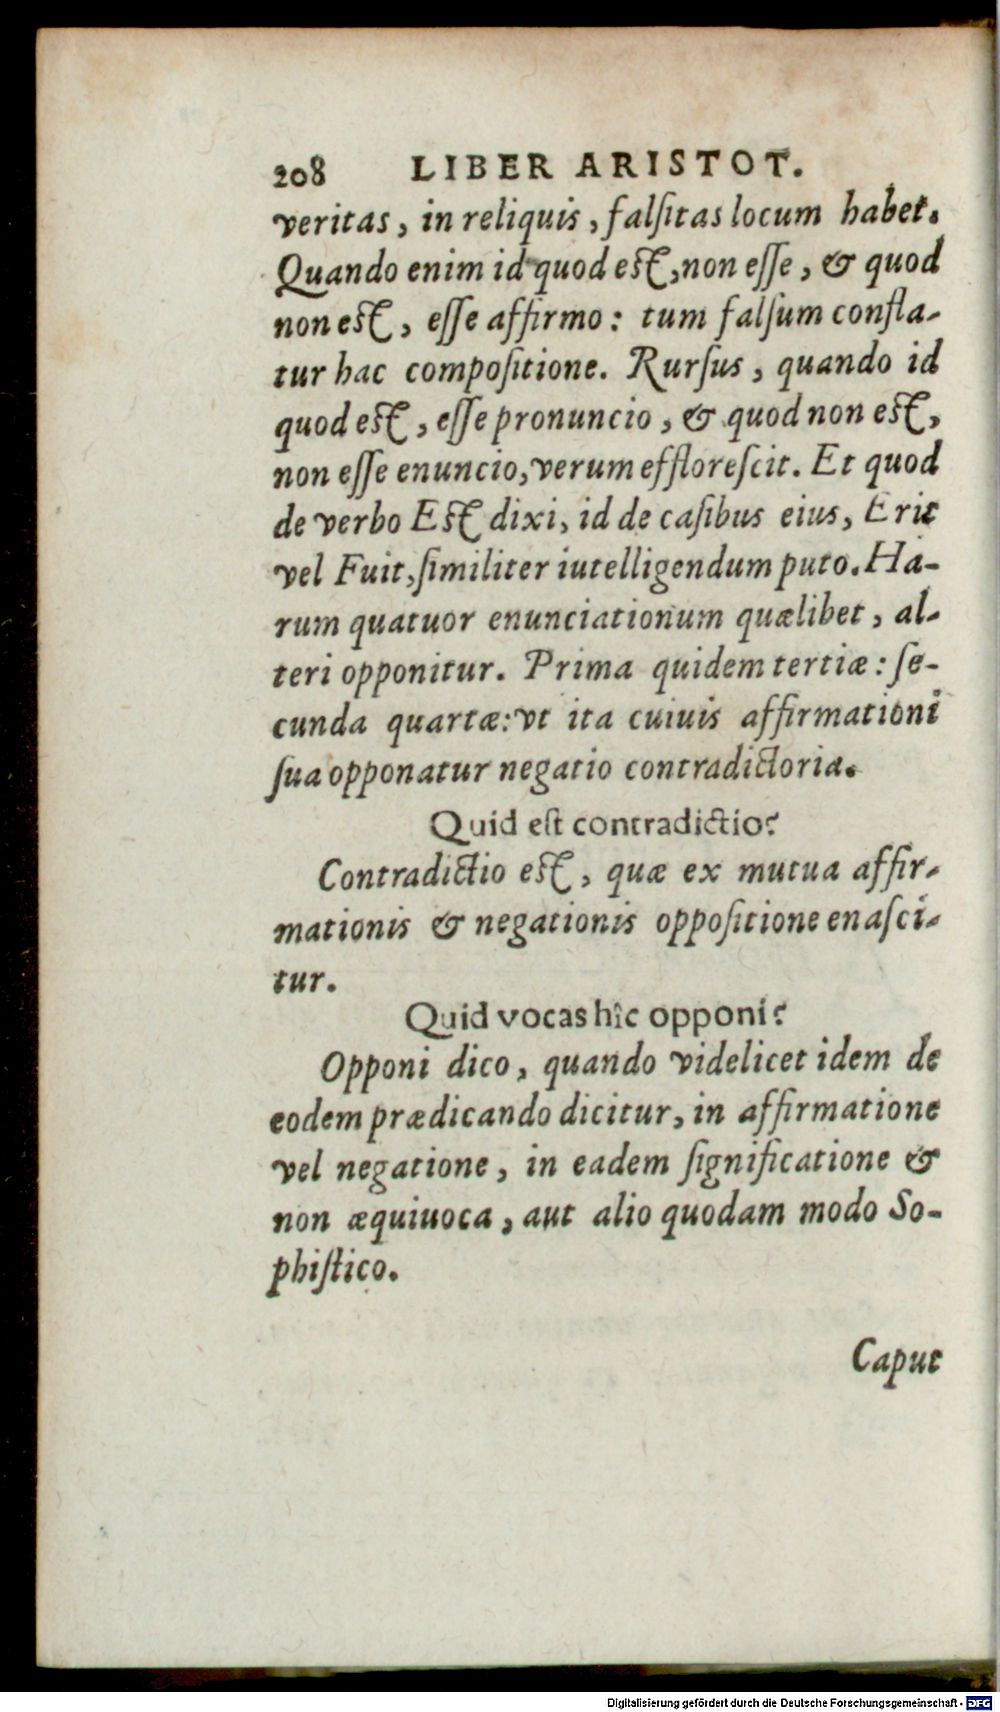 208 LIBER ARISTOT.
veritas, in reliquis, falſitas locum habet.
Quando enim id quod eſt, non eſſe, & quod
non eſt, eſſe affirmo: tum falſum confla-
tur hac compoſitione. Rurſus, quando id
quod eſt, eſſe pronuncio, & quod non eſt,
non eſſe enuncio, verum effloreſcit. Et quod
de verbo Eſt dixi, id de caſibus eius, Erit
vel Fuit, ſimiliter iutelligendum puto. Ha-
rum quatuor enunciationum quælibet, al-
teri opponitur. Prima quidem tertiæ: ſe-
cunda quartæ: vt ita cuiuis affirmationi
ſua opponatur negatio contradictoria.
Quid eſt contradictio?
Contradictio eſt, quæ ex mutua affir-
mationis & negationis oppoſitione enaſci-
tur.
Quid vocas hîc opponi?
Opponi dico, quando videlicet idem de
eodem prædicando dicitur, in affirmatione
vel negatione, in eadem ſignificatione &
non æquiuoca, aut alio quodam modo So-
phiſtico.
Caput
Digitalisierung gefördert durch die Deutsche Forschungsgemeinschaft - DFG